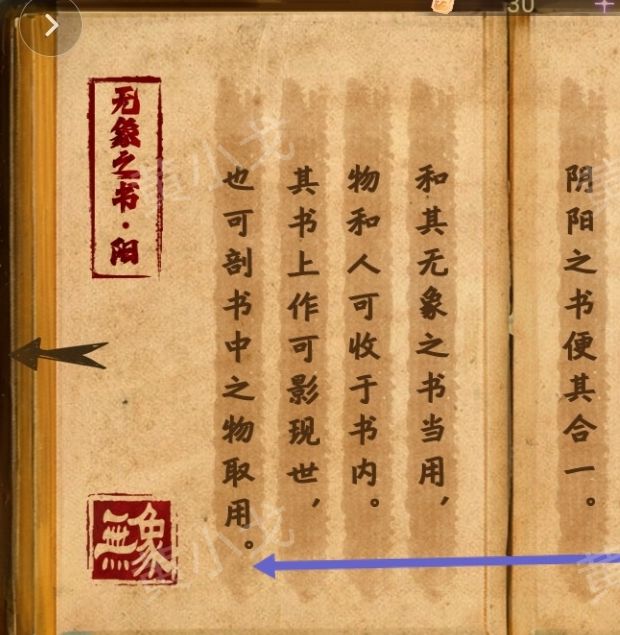 30
阴阳之书便其合一。
和其无象之书当用，
物和人可收于书内。
其书上作可影现世，
也可剖书中之物取用。
无象之书·阳
無象
黄小戈
黄小戈
黄
黄